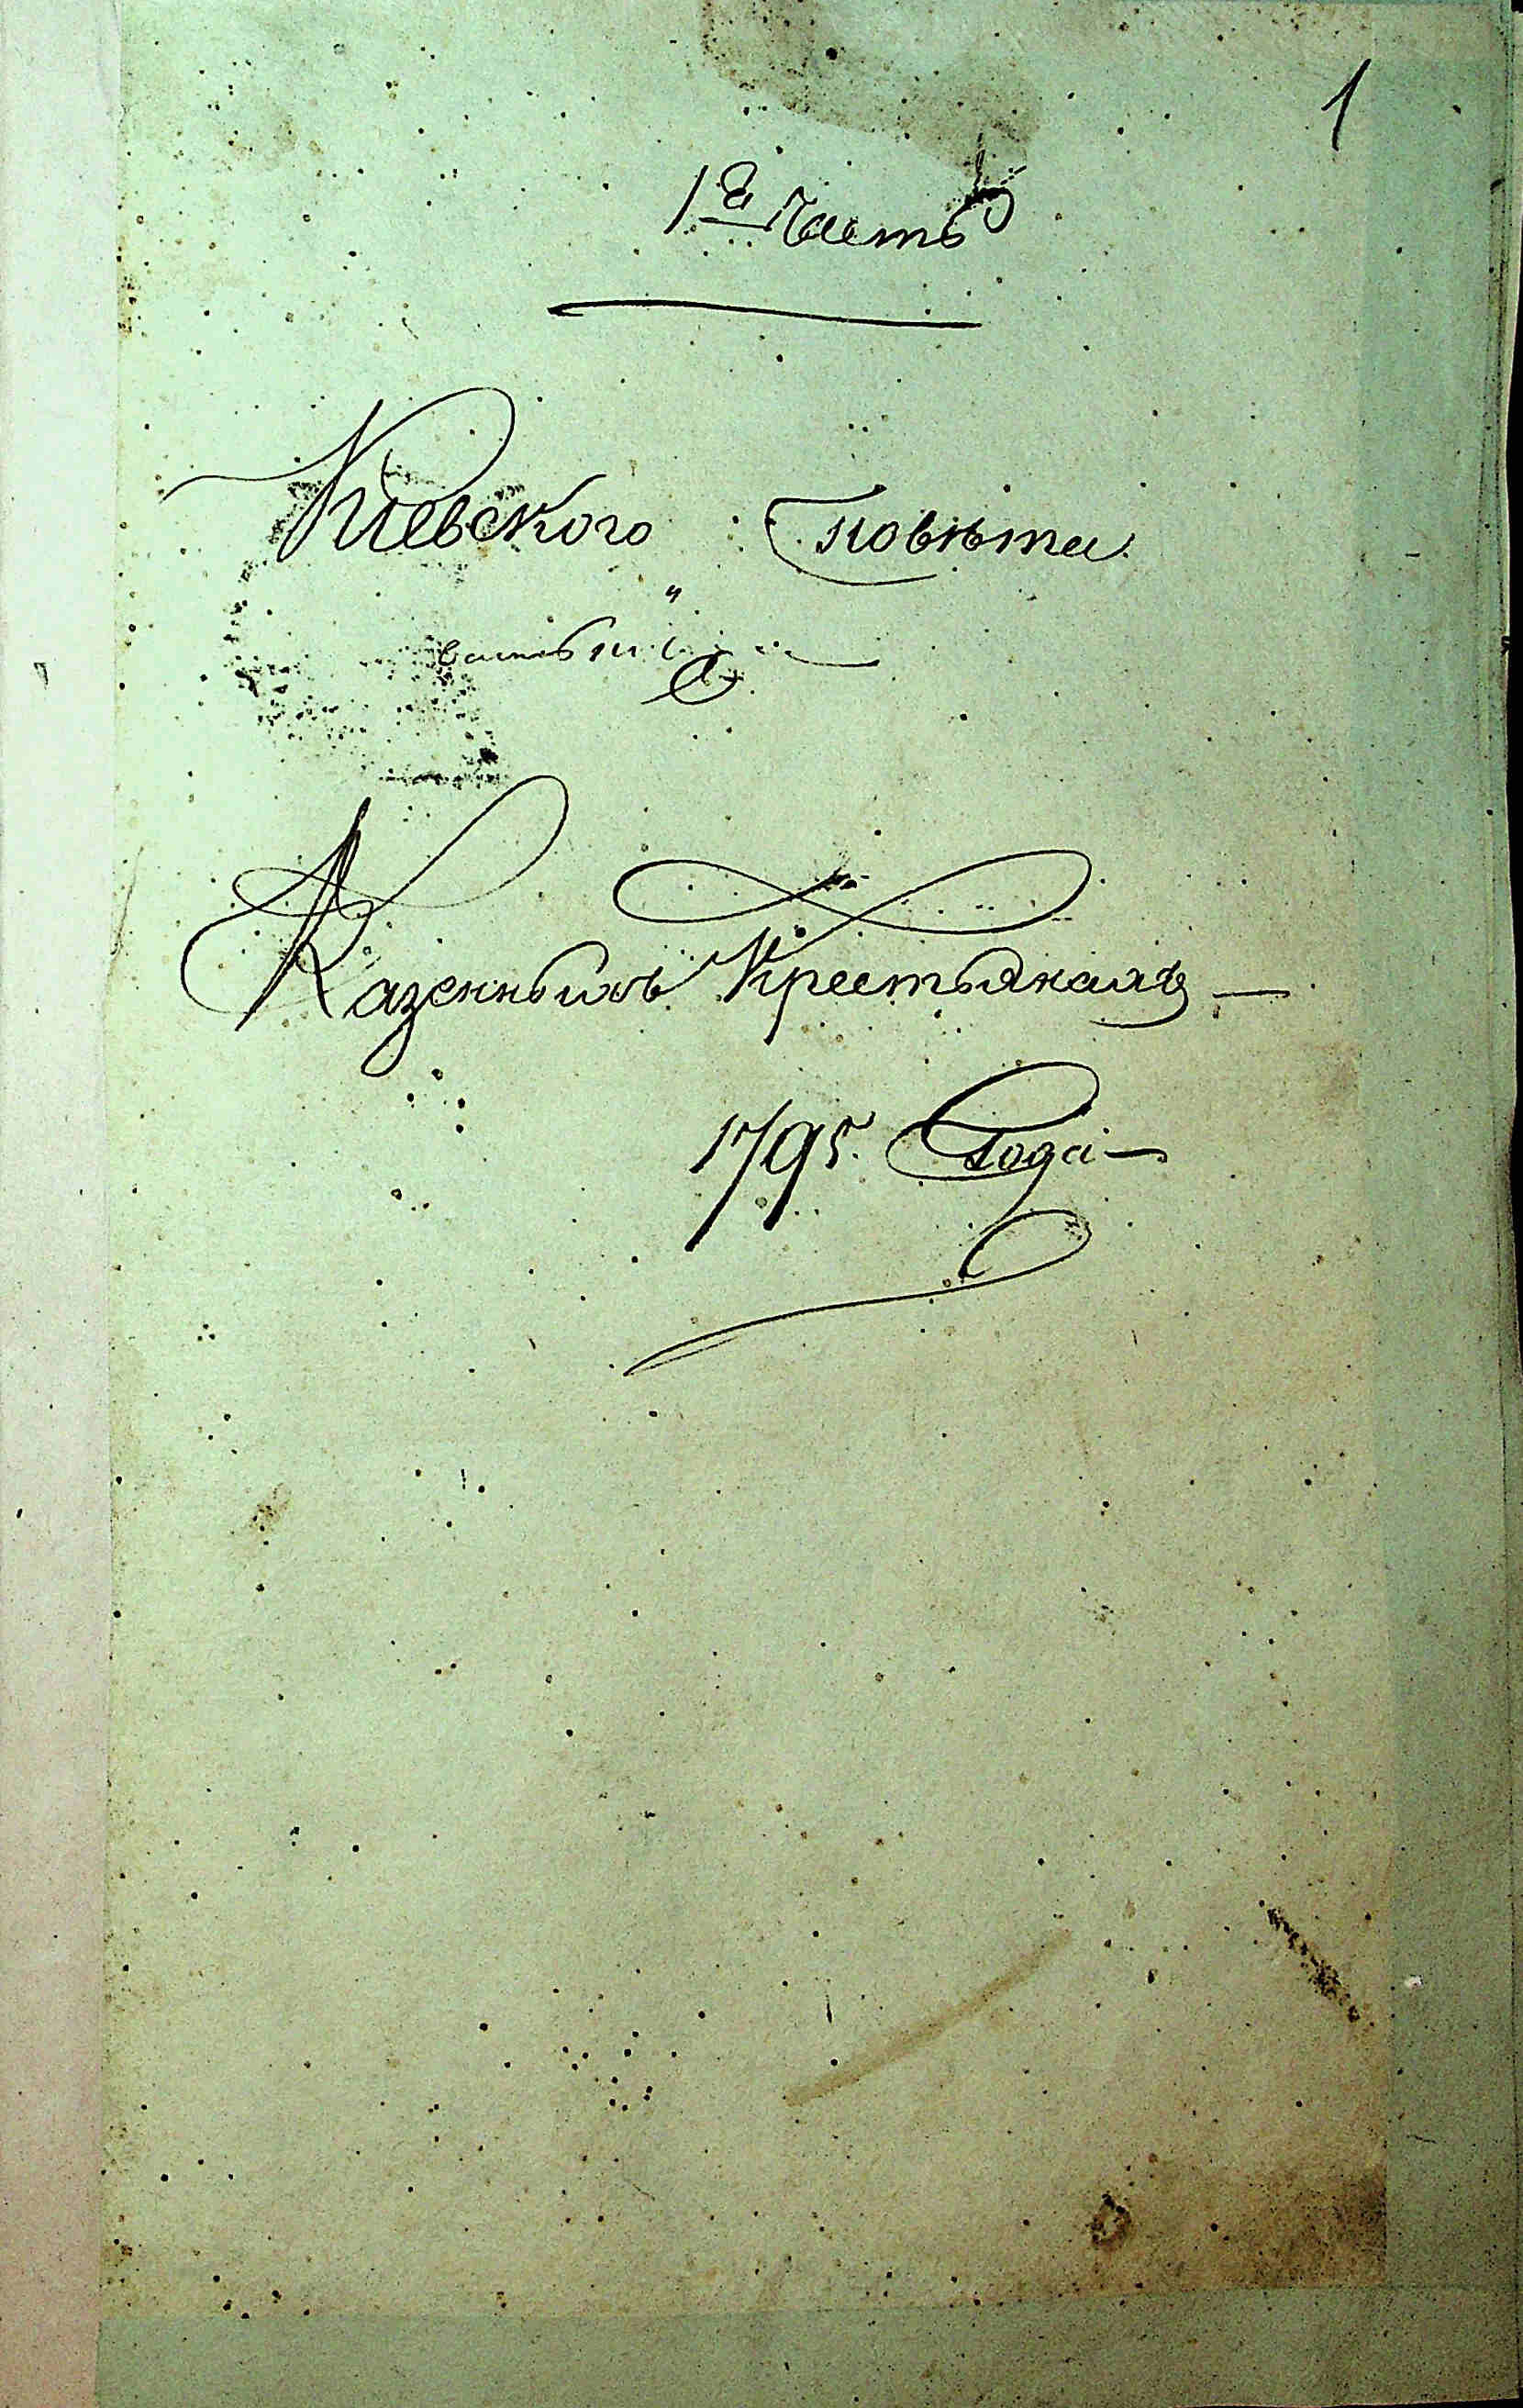 1
1я Часть
Киевского повѣта
Казенныхъ Крестьянамъ
1795. Года